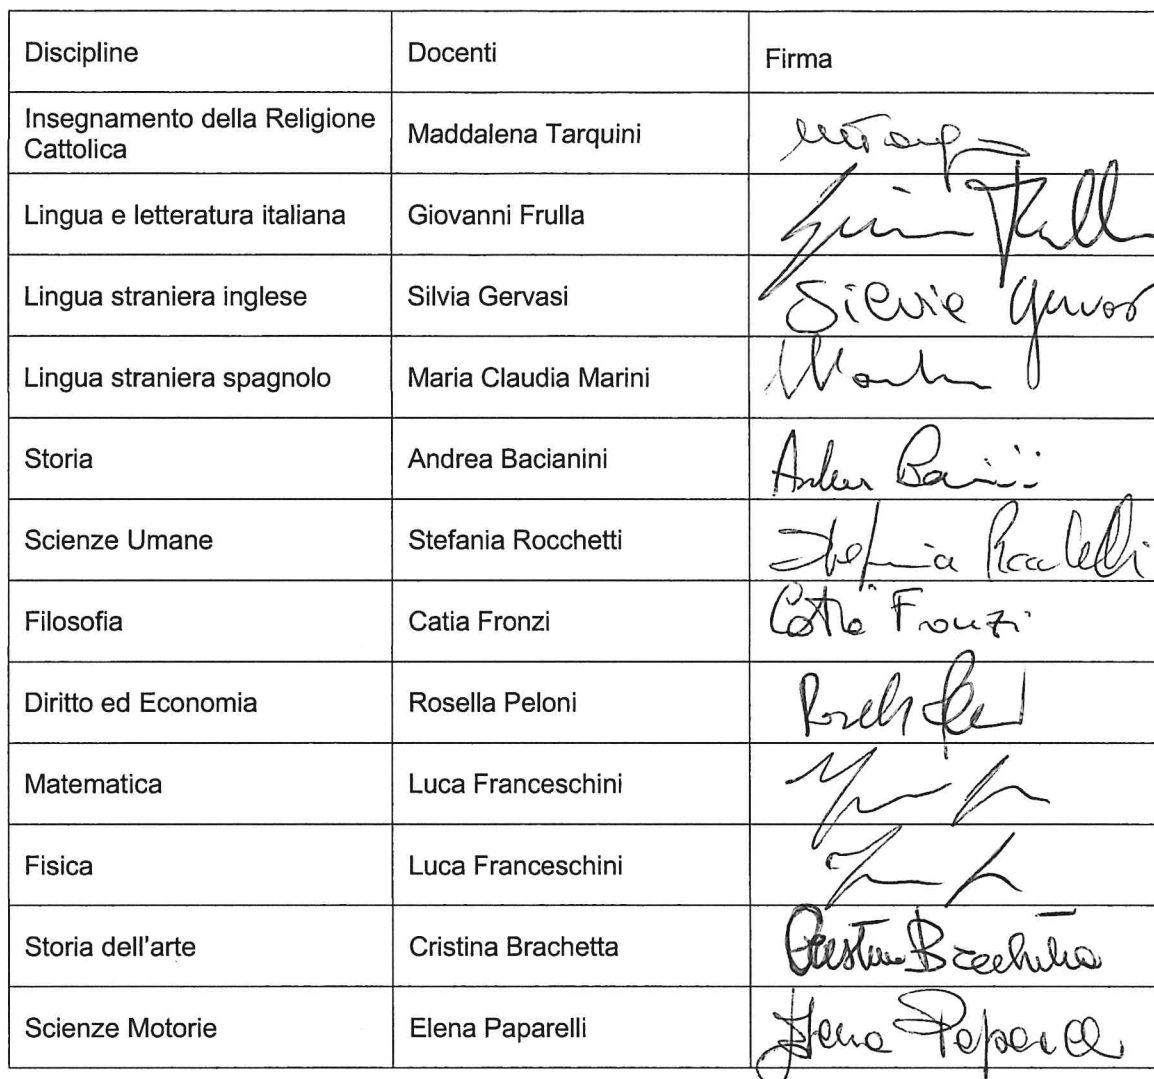 Discipline Docenti Firma
Insegnamento della Religione
Cattolica Maddalena Tarquini
Lingua e letteratura italiana Giovanni Frulla
Lingua straniera inglese Silvia Gervasi Silvia
Lingua straniera spagnolo Maria Claudia Marini
Storia Andrea Bacianini
Scienze Umane Stefania Rocchetti Stefania
Filosofia Catia Fronzi Catia Fronzi
Diritto ed Economia Rosella Peloni
Matematica Luca Franceschini
Fisica Luca Franceschini
Storia dell'arte Cristina Brachetta
Scienze Motorie Elena Paparelli Elena